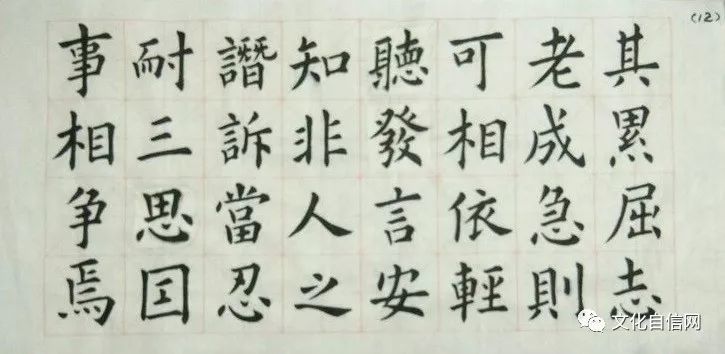 (12)
其累屈志
老成急則
可相依輕
聽發言安
知非人之
譖訴當忍
耐三思囙
事相争焉
文化自信网